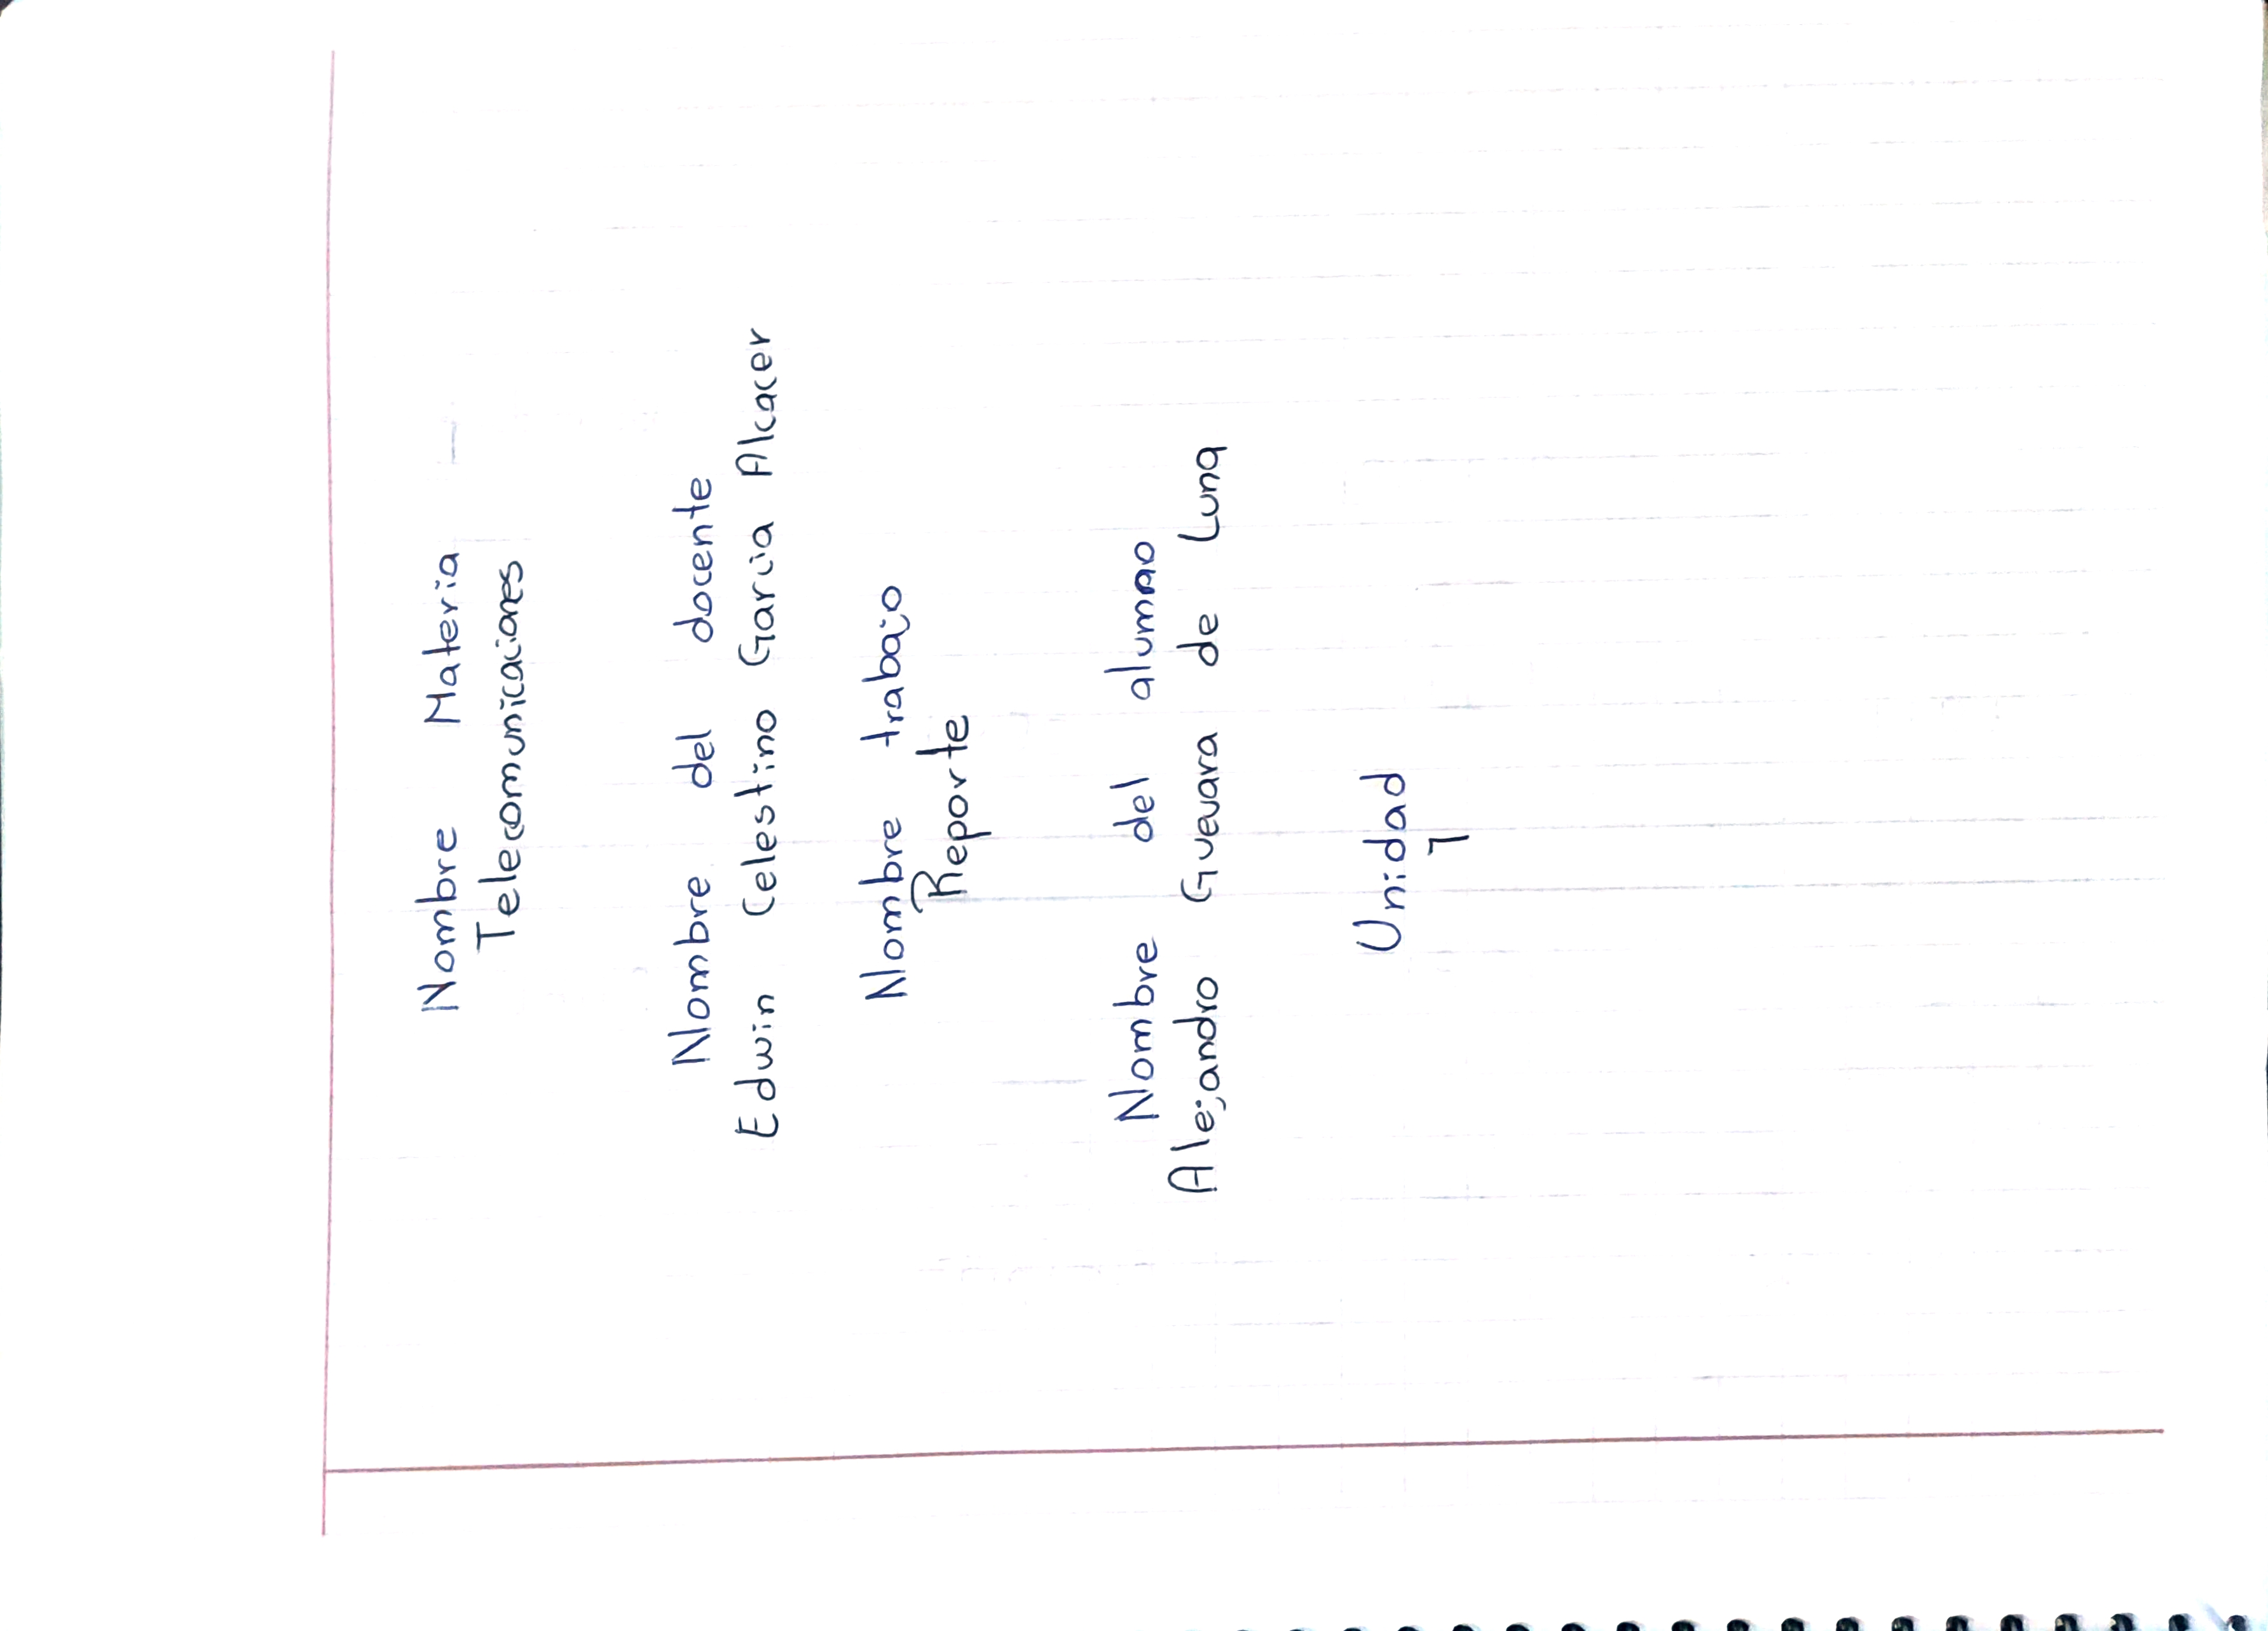 Nombre Materia
Telecomunicaciones
Nombre del docente
Edwin Celestino Garcia Alcacer
Nombre trabajo
Reporte
Nombre del alumno
Alejandro Guevara de Luna
Unidad
1